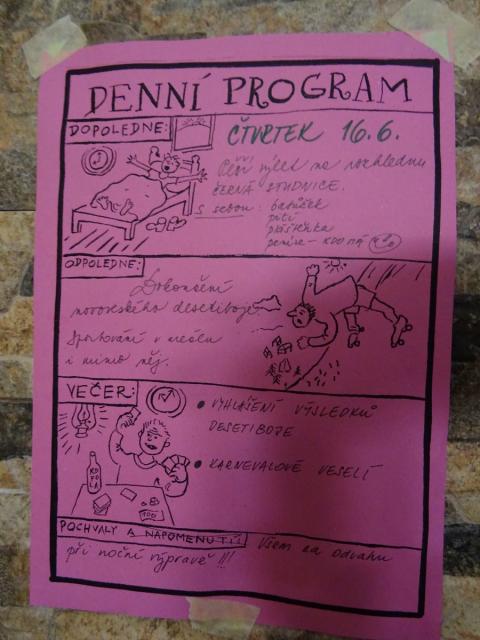 DENNÍ PROGRAM
DOPOLEDNE:
ČTVRTEK 16.6.
Pěší výlet na rozhlednu
ČERNÁ STUDNICE.
s sebou: batůžek
pití
pláštěnka
peníze - KDO MÁ
ODPOLEDNE:
Dokončení
novoveského desetiboje.
Sportování v areálu
i mimo něj.
VEČER:
• VYHLÁŠENÍ VÝSLEDKŮ
DESETIBOJE
• KARNEVALOVÉ VESELÍ
KOFOLA
100
POCHVALY A NAPOMENUTÍ: Všem za odvahu
při noční výpravě !!!